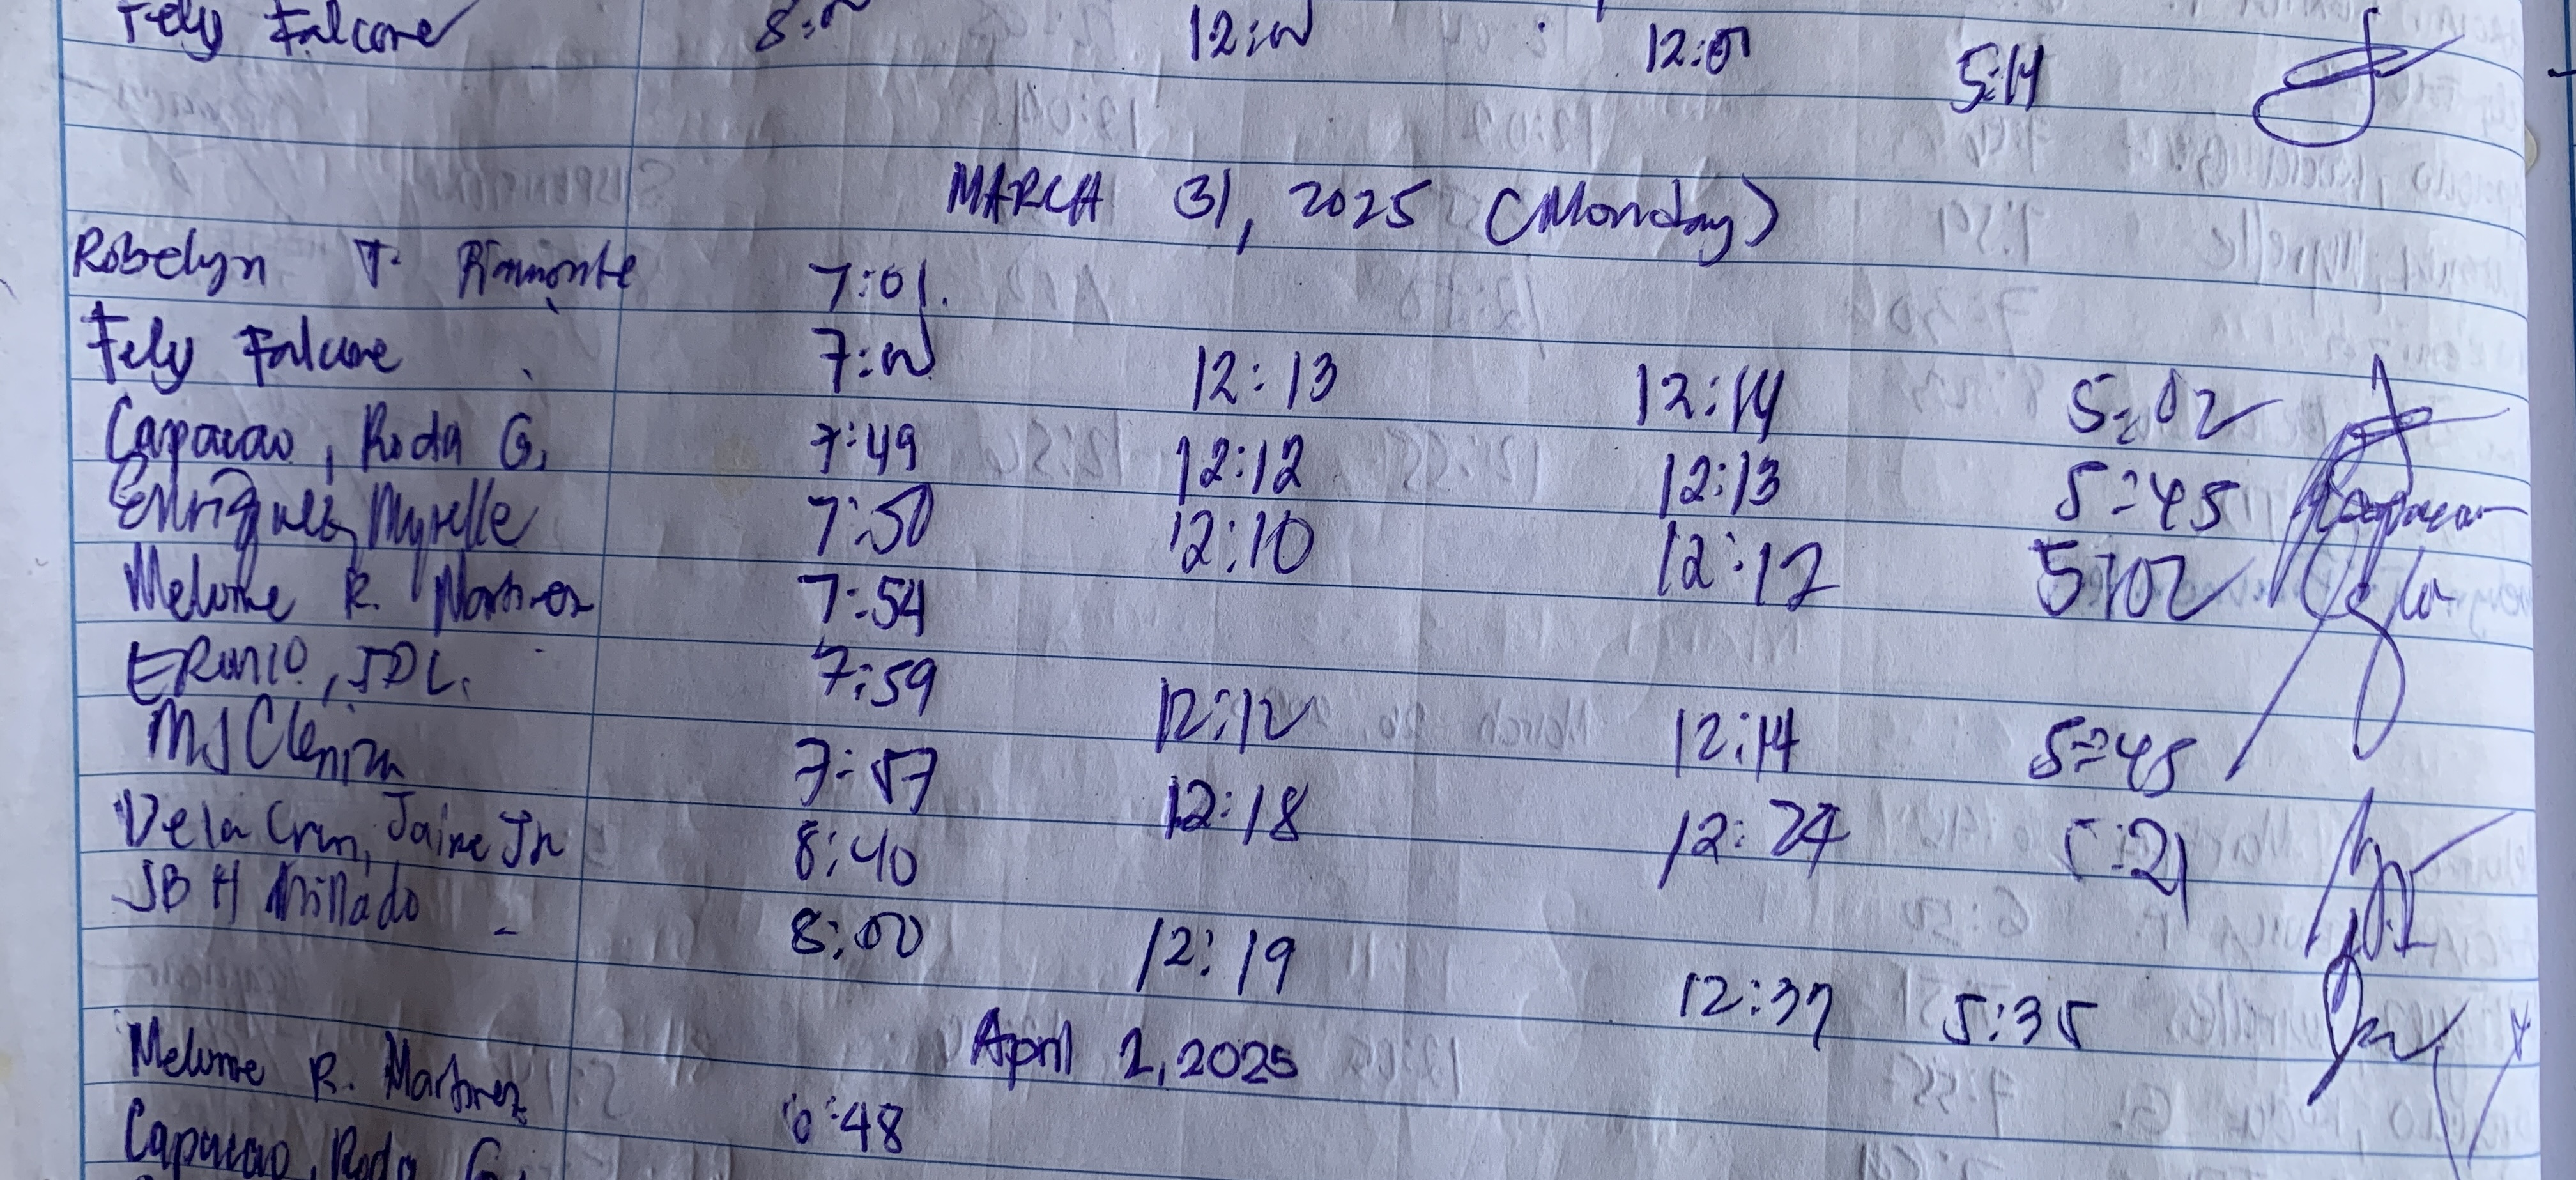 Fely Falcone 8:00 12:00 12:01 5:14
MARCH 31, 2025 (Monday)
Robelyn T. Rimmonte 7:01
Fely Falcone 7:00 12:13 12:14 5:02
Capacao, Roda G. 7:49 12:12 12:13 5:45
Enriquez, Myrelle 7:50 12:10 12:12 5:02
Melome R. Martinez 7:54
JDL. 7:59 12:12 12:14 5:45
MJ Cleniza 7:57 12:18 12:24 5:21
Dela Cruz, Jaime Jr 8:40
JBH Millado 8:00 12:19 12:37 5:35
April 2, 2025
Melome R. Martinez 6:48
Capacao, Roda G.